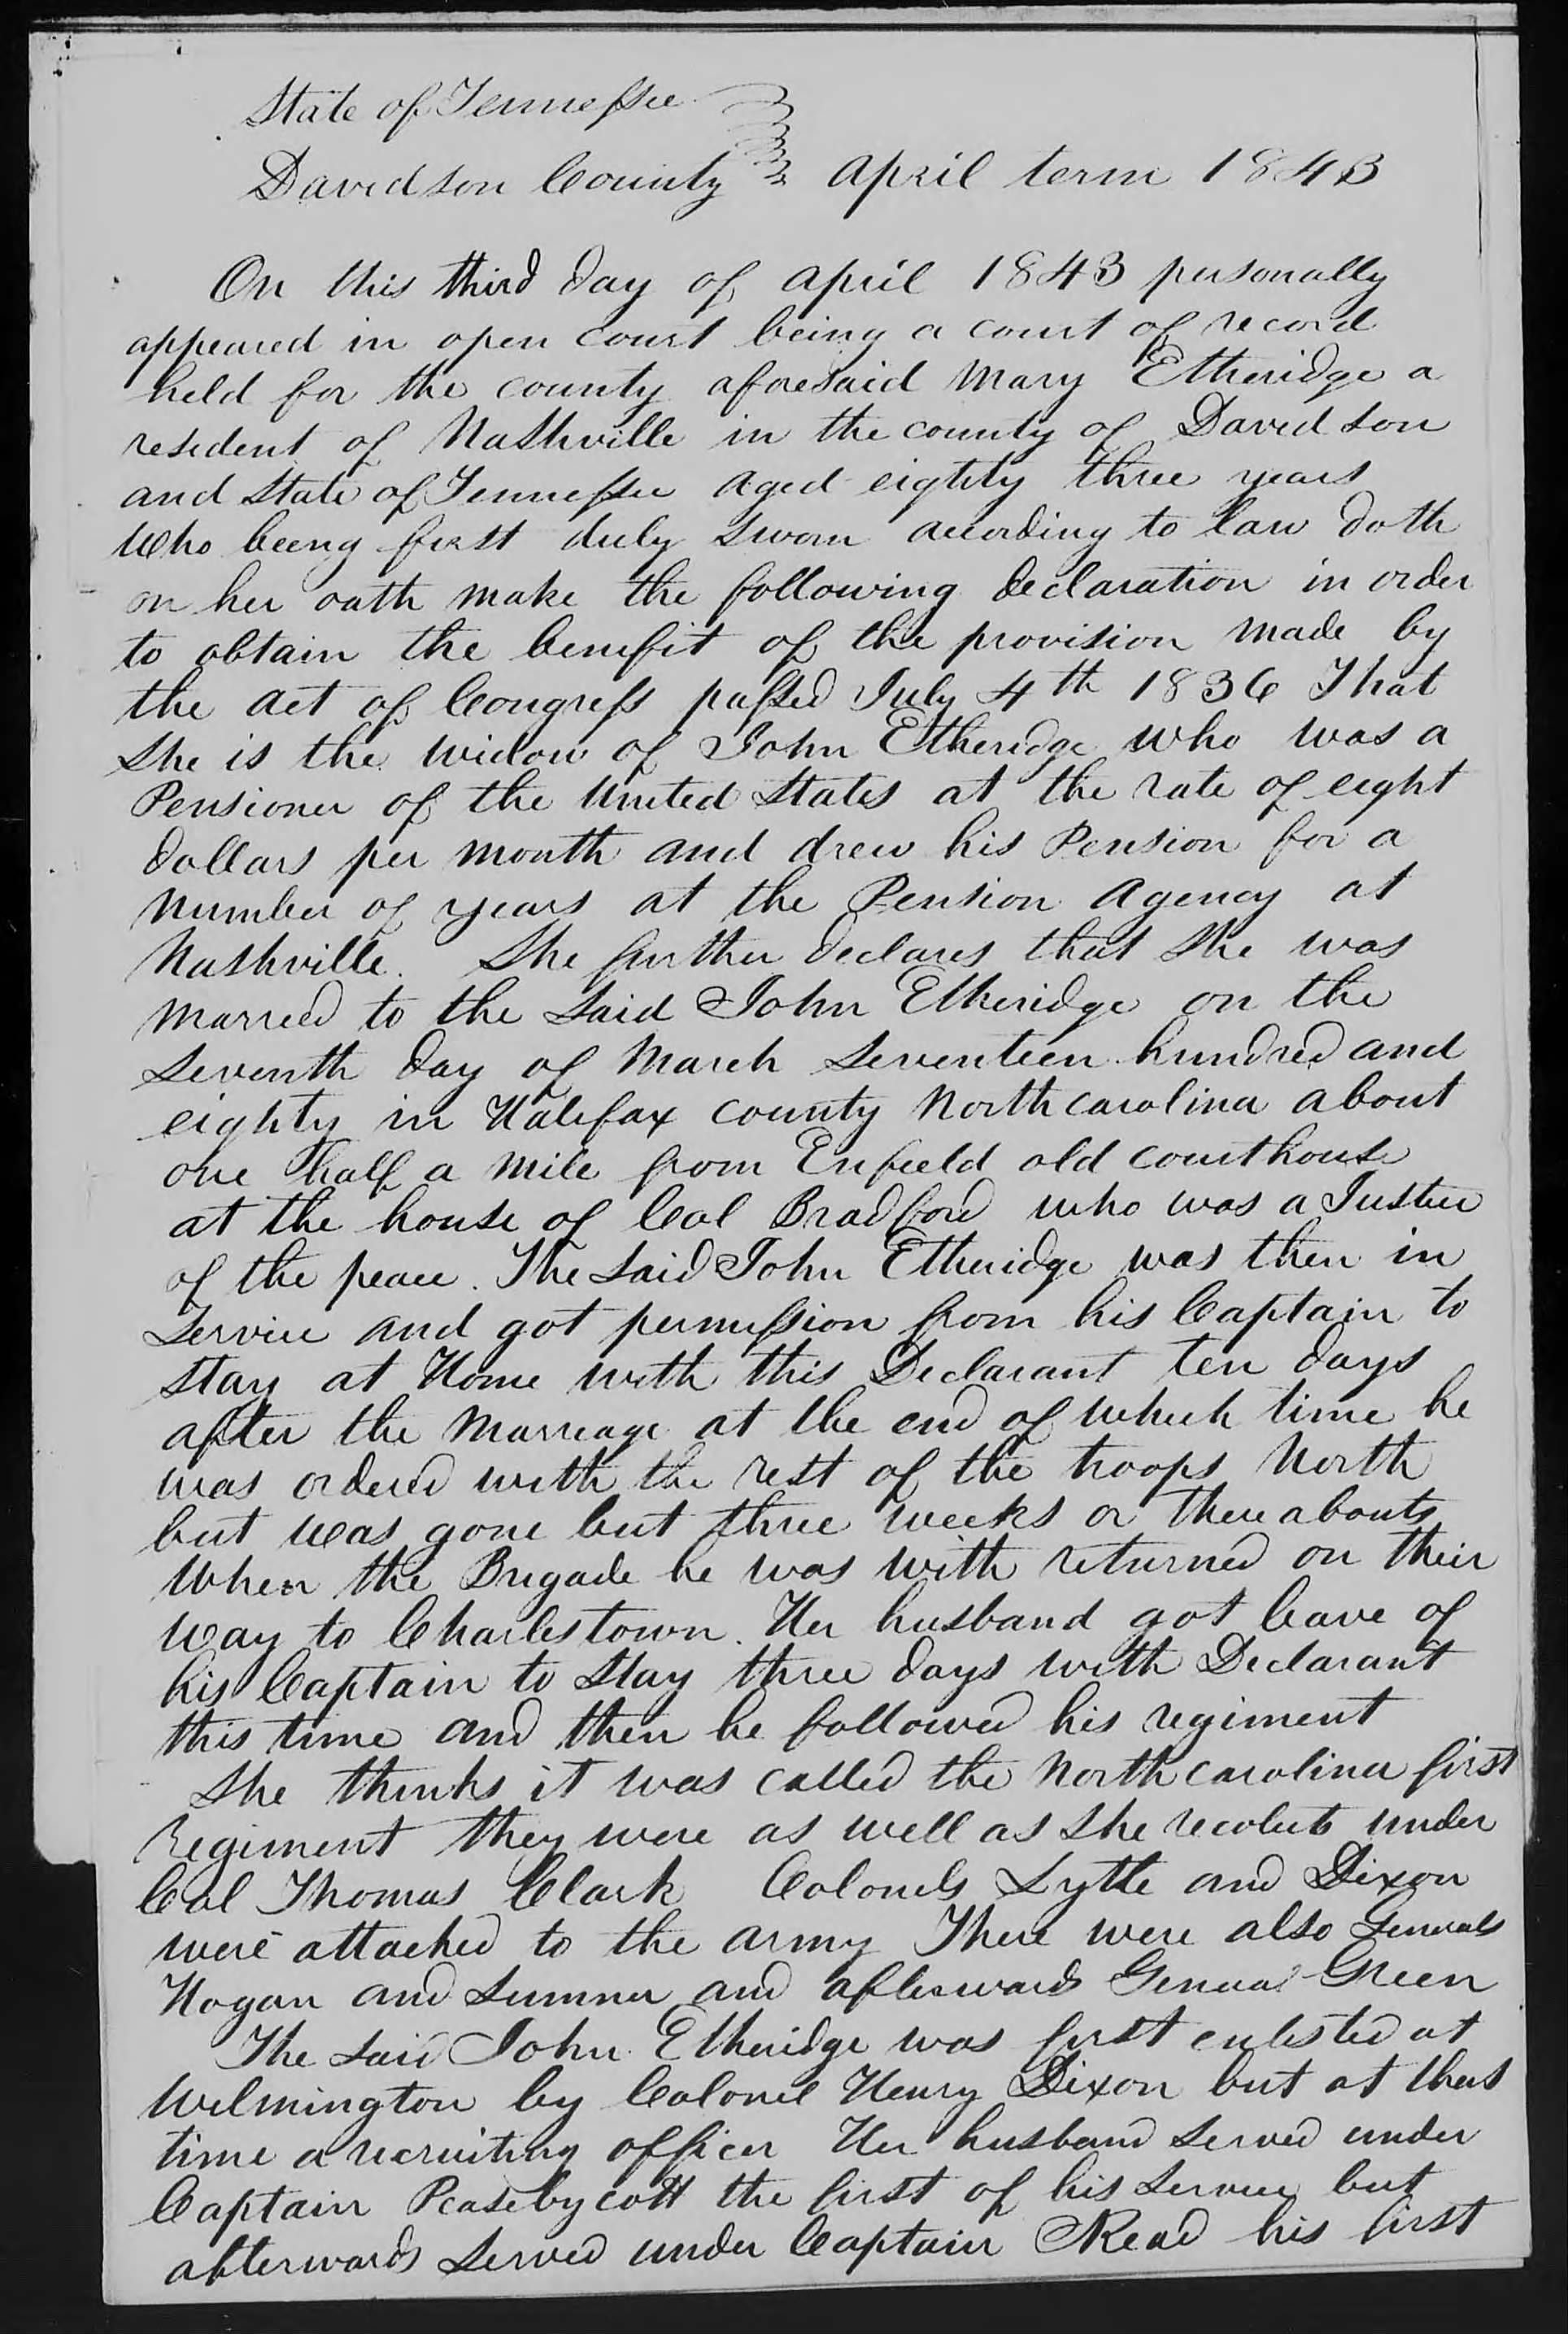 State of Tennessee
Davidson County April term 1843
On this third day of april 1843 personally
appeared in open court being a court of record
held for the county aforesaid Mary Etheridge a
resident of Nashville in the county of Davidson
and State of Tennessee aged eightty three years
Who being first duly sworn according to law doth
on her oath make the following declaration in order
to obtain the benefit of the provision made by
the act of Congress passed July 4th 1836 That
She is the widow of John Etheridge who was a
Pensioner of the United States at the rate of eight
dollars per month and drew his Pension for a
number of years at the Pension Agency at
Nashville. She further declares that she was
Married to the said John Etheridge on the
seventh day of March seventeen hundred and
eighty in Halifax county North carolina about
one half a mile from Enfield old courthouse
at the house of Col Bradford who was a Justice
of the peace. The said John Etheridge was then in
Service and got permission from his Captain to
stay at Home with this Declarant ten days
after the Marriage at the end of which time he
was ordered with the rest of the troops North
but was gone but three weeks or thereabouts
When the Brigade he was with returned on their
way to Charlestown. Her husband got leave of
his Captain to stay three days with Declarant
this time and then he followed his regiment
She thinks it was called the North carolina first
Regiment they were as well as she recolects under
Col Thomas Clark Colonels Lytle and Dixon
were attached to the army There were also Generals
Hogan and Sumner and afterwards General Green
The said John Etheridge was first enlisted at
Wilmington by Colonel Henry Dixon but at that
time a recruiting officer Her husband served under
Captain Peasebycott the first of his service but
afterwards served under Captain Read his first